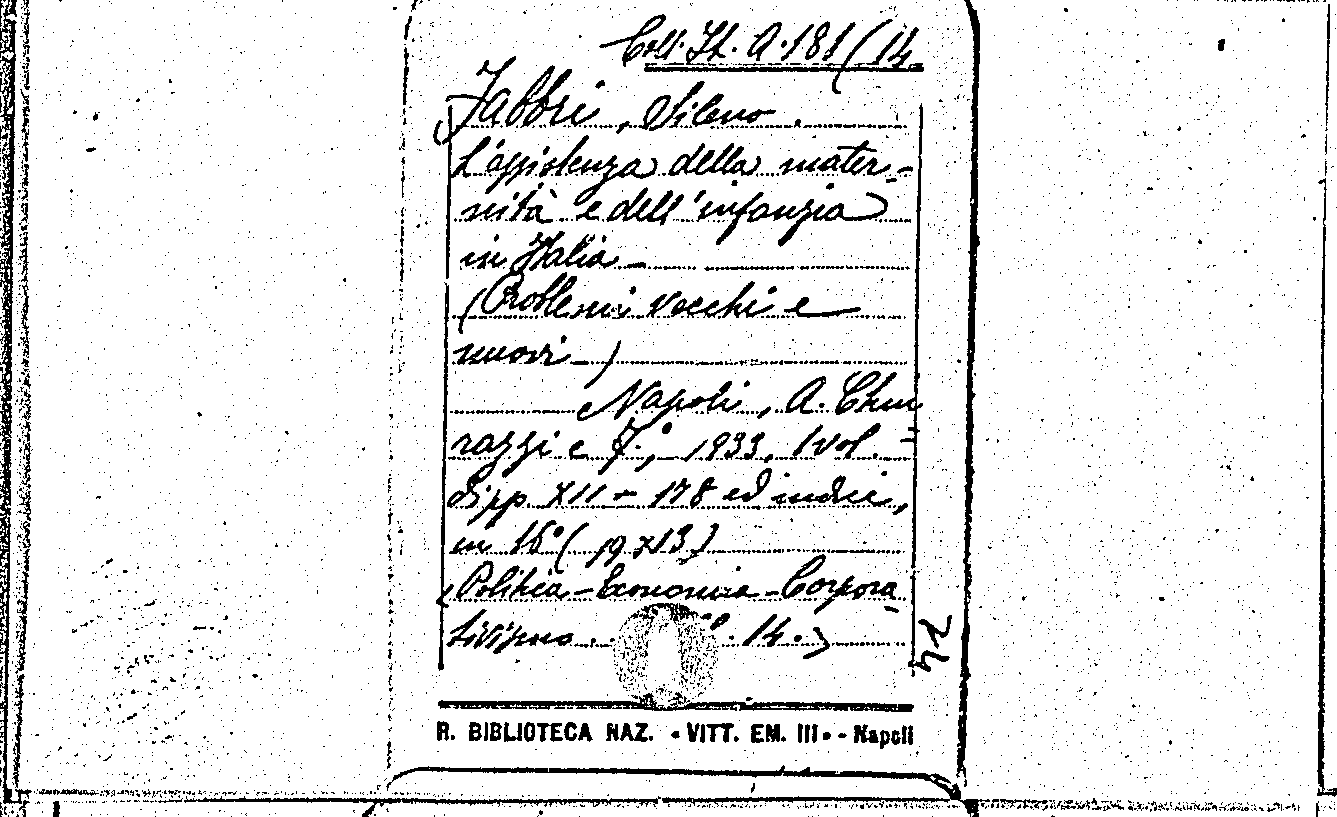 Coll. It. A. 181 (14
Fabbri, Sileno.
L'assistenza della mater-
nità e dell'infanzia
in Italia -
(Problemi vecchi e
nuovi -)
Napoli, A. Chiu
razzi e F.°, 1933, 1 vol. =
di pp. XII - 178 ed indici,
in 16° (19 x 13)
(Politica - Economia - Corpora
tivismo. . 14.)
R. BIBLIOTECA NAZ. «VITT. EM. III» - Napoli